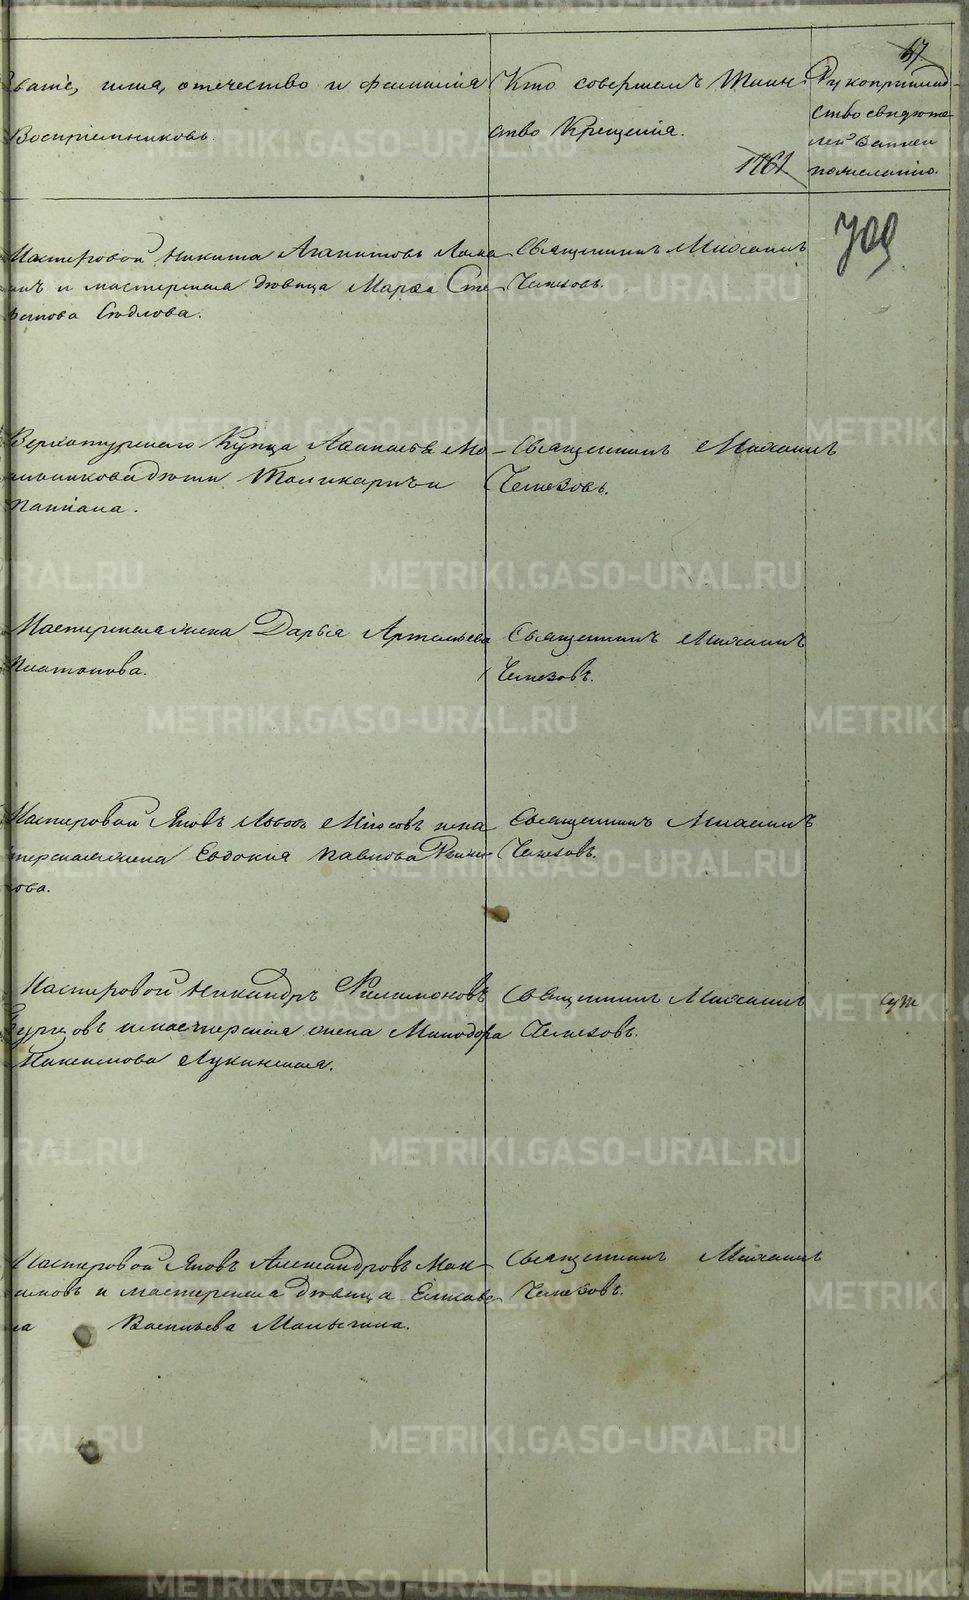 67
Званіе, имя, отечество и фамилія
Воспріемниковъ.
Кто совершалъ Таин-
ство Крещенія.
1761
Рукоприклад-
ство свидѣте
лей записи
по желанію.
709
Мастеровой Никита Агапитовъ
и мастерская дѣвица Марѳа Сте
фанова Сѣдлова.
Священникъ Михаилъ
Чемезовъ.
Верхотурскаго Купца
дѣти Поликарпъ и
Священникъ Михаилъ
Чемезовъ.
Мастерская жена Дарья Артемьева
Платонова.
Священникъ Михаилъ
Чемезовъ.
Мастеровой Яковъ Львовъ и ма
стерская жена Евдокія Павлова
ова.
Священникъ Михаилъ
Чемезовъ.
Мастеровой Никандръ Филимоновъ
и мастерская жена Минодора
Максимова Лукинская.
Священникъ Михаилъ
Чемезовъ.
Мастеровой Яковъ Александровъ Мак
симовъ и мастерская дѣвица Елизаве
та Васильева Малыгина.
Священникъ Михаилъ
Чемезовъ.
METRIKI.GASO-URAL.RU